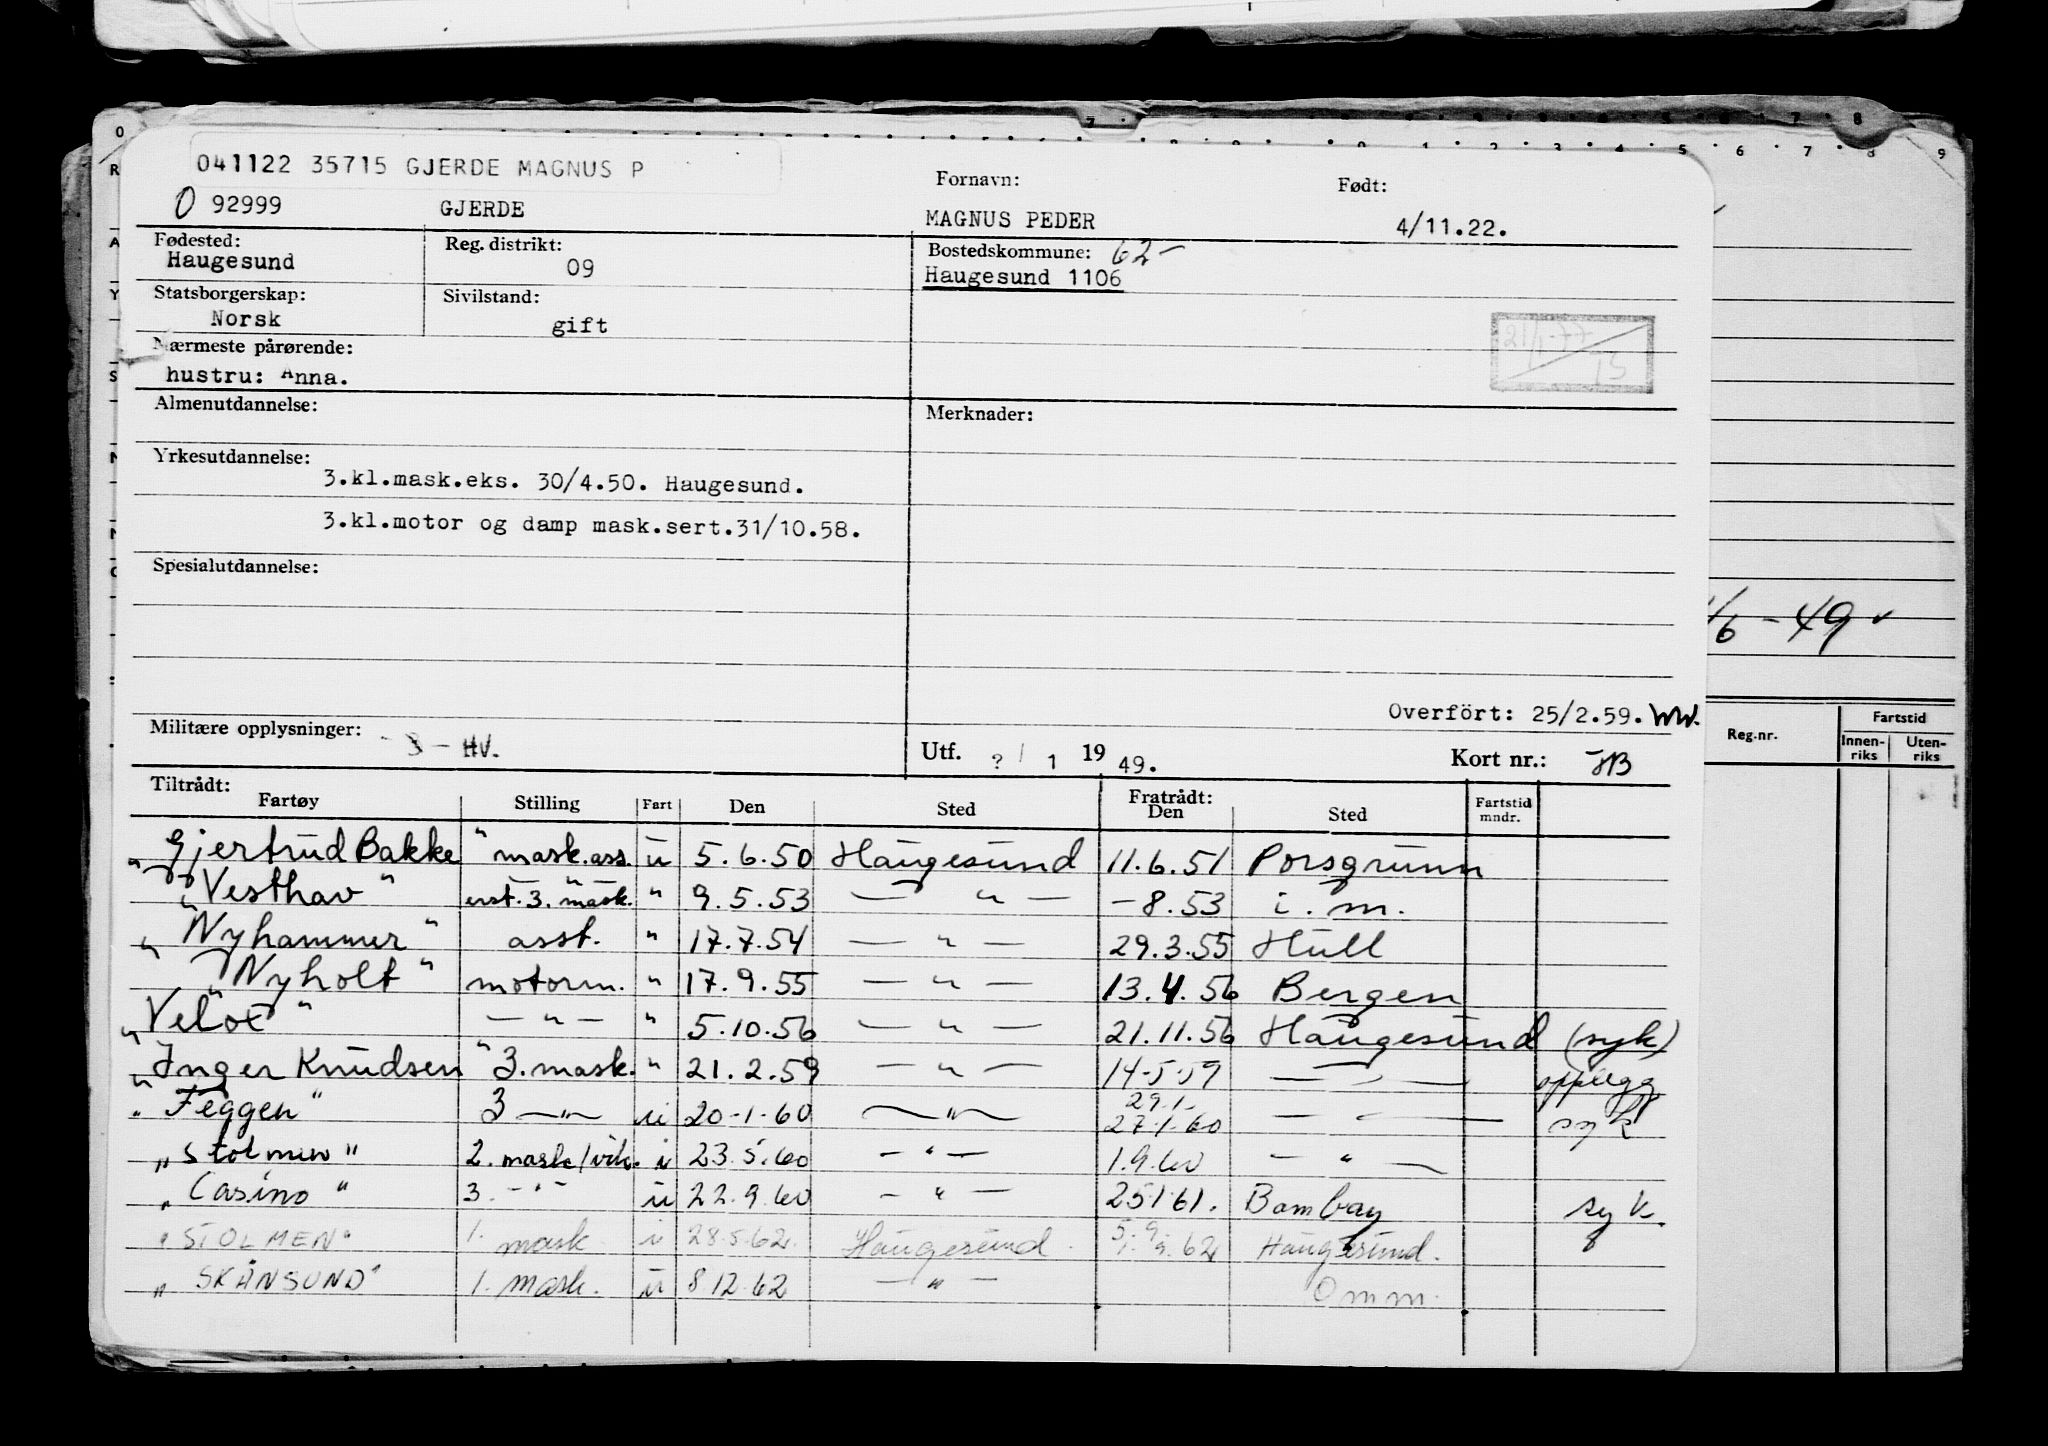 041122 35715 GJERDE MAGNUS P
Fornavn: Født:
O 92999 GJERDE MAGNUS PEDER 4/11.22.
Fødested: Reg. distrikt: Bostedskommune: 62-
Haugesund 09 Haugesund 1106
Statsborgerskap: Sivilstand:
Norsk gift
21/1-77
Nærmeste pårørende:
hustru: Anna.
Almenutdannelse: Merknader:
Yrkesutdannelse:
3.kl.mask.eks. 30/4.50. Haugesund.
3.kl.motor og damp mask.sert.31/10.58.
Spesialutdannelse:
Overfört: 25/2.59. WW.
Militære opplysninger: - HV. Utf. ? / 1 19 49. Kort nr.:
Tiltrådt: Fratrådt:
Fartøy Stilling Fart Den Sted Den Sted Fartstid mndr.
"Gjertrud Bakke" mask.ass. u 5.6.50 Haugesund 11.6.51 Porsgrunn
"Vesthav" erst. 3. mask. " 9.5.53 — " — -8.53 i.m.
"Nyhammer" asst. " 17.7.54 — " — 29.3.55 Hull
"Nyholt" motorm. " 17.9.55 — " — 13.4.56 Bergen
"Velox" — " — " 5.10.56 — " — 21.11.56 Haugesund (syk)
"Inger Knudsen" 3. mask. " 21.2.59 — " — 14-5-59 — " — opplegg
"Feggen" 3 — " — u 20-1-60 — " — 29.1- 27.1.60 — " — syk
"Stolmen" 2. mask/vik. i 23.5.60 - " - 1.9.60 — " —
"Casino" 3. - " - u 22.9.60 - " — 25 1 61. Bombay syk.
"STOLMEN" 1. mask i 28.5.62. Haugesund. 5.9.62 Haugesund.
"SKÅNSUND" 1. mask. u 8 12.62 — " — Omm.
0 7 8
1 2 3 4 5 6 7 8 9
/6 - 49
Reg.nr. Fartstid
Innen-riks Uten-riks